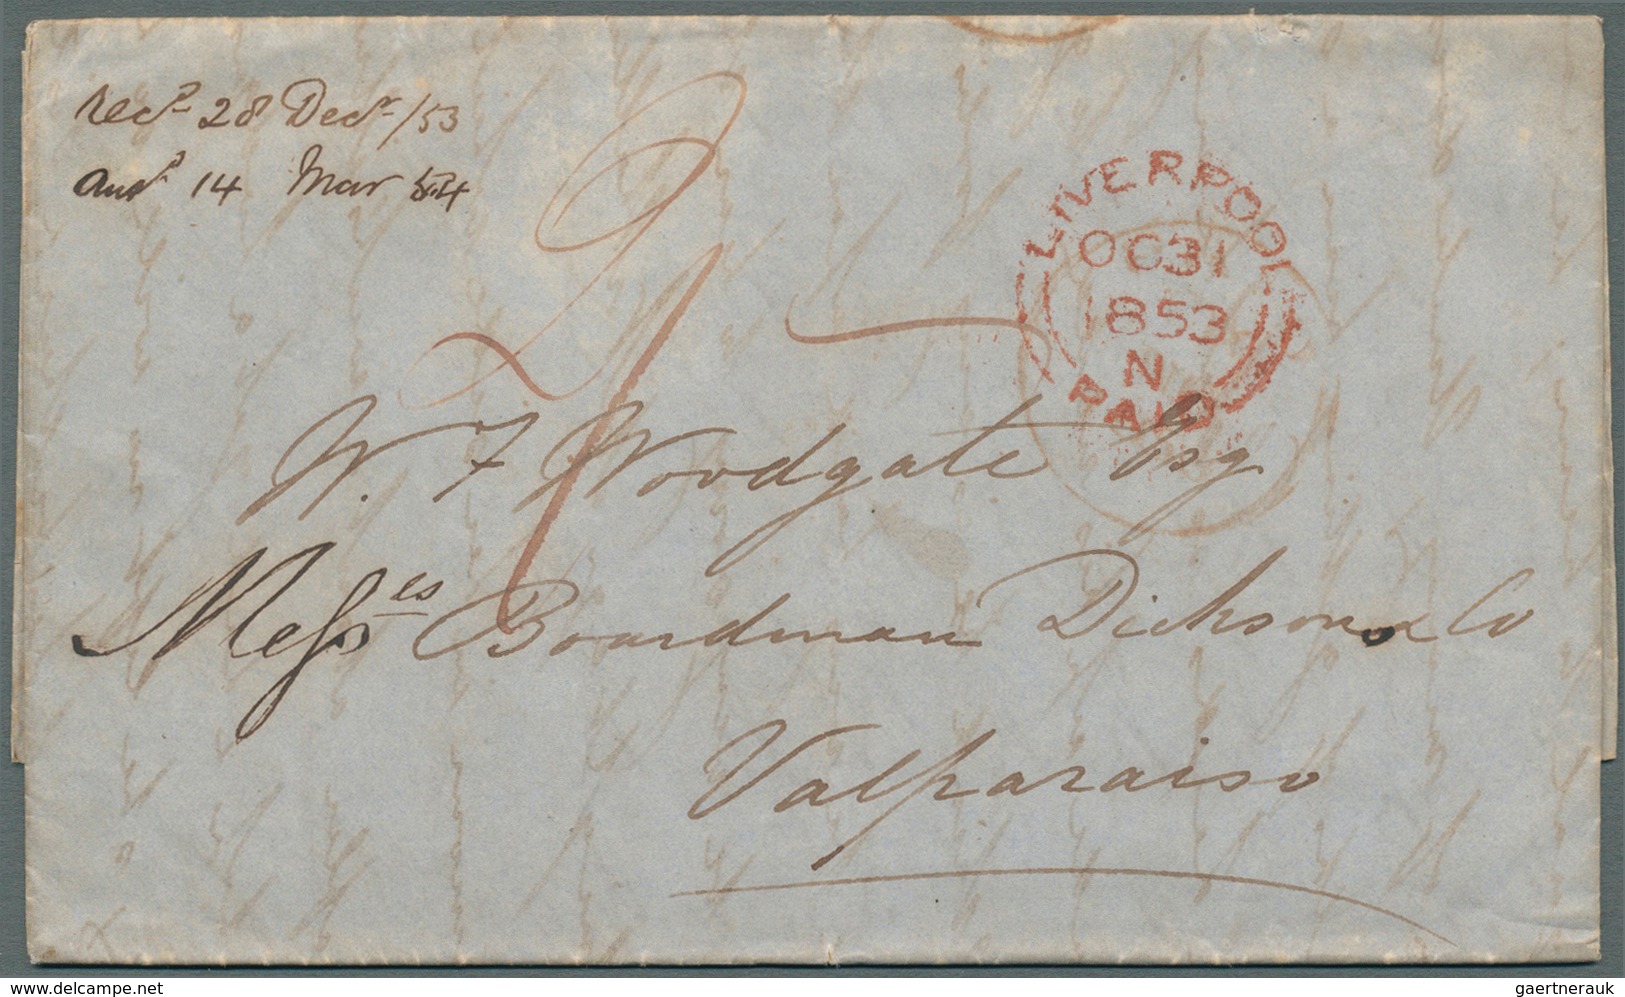 recd 28 Decr /53
ansd 14 Mar 54
LIVERPOOL
OC31
1853
N
PAID
2/-
W. F Woodgate Esq
Messes Boardman Dickson & Co
Valparaiso
www.delcampe.net
gaertnerauk